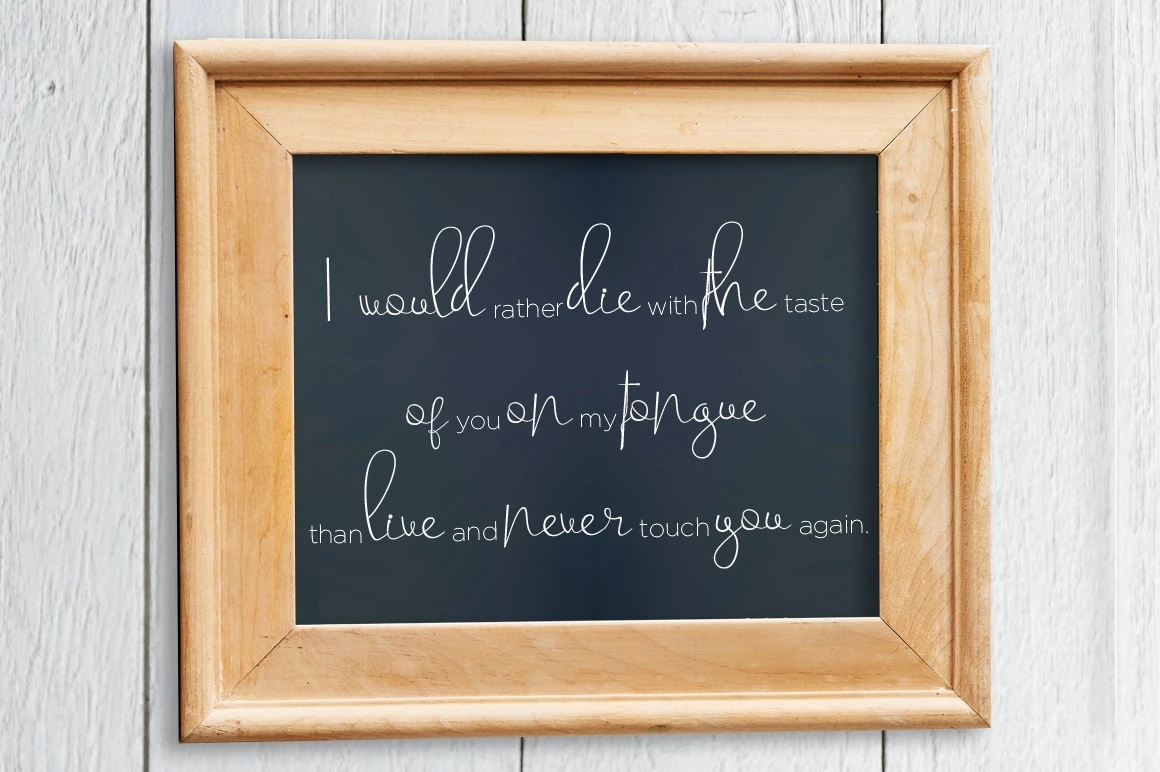 I would rather die with the taste
of you on my tongue
than live and never touch you again.